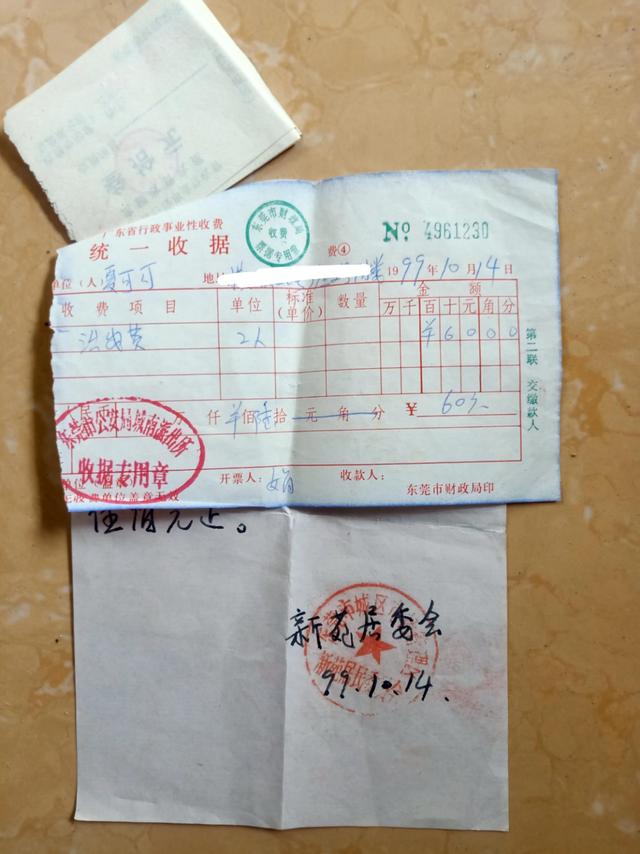 广东省行政事业性收费
统一收据
东莞市财政局
收费
票据专用章
费④
№ 4961230
单位(人)夏可可 地址 1999年10月14日
收费项目 单位 标准(单价) 数量 金额
万 千 百 十 元 角 分
治安费 2人 ¥6000
仟 ¥佰陆拾 元 角 分 ¥ 60元
第二联 交缴款人
东莞市公安局城南派出所
收据专用章
开票人: 收款人:
未收费单位盖章无效
东莞市财政局印
伍佰元正。
新苑居委会
99.10.14.